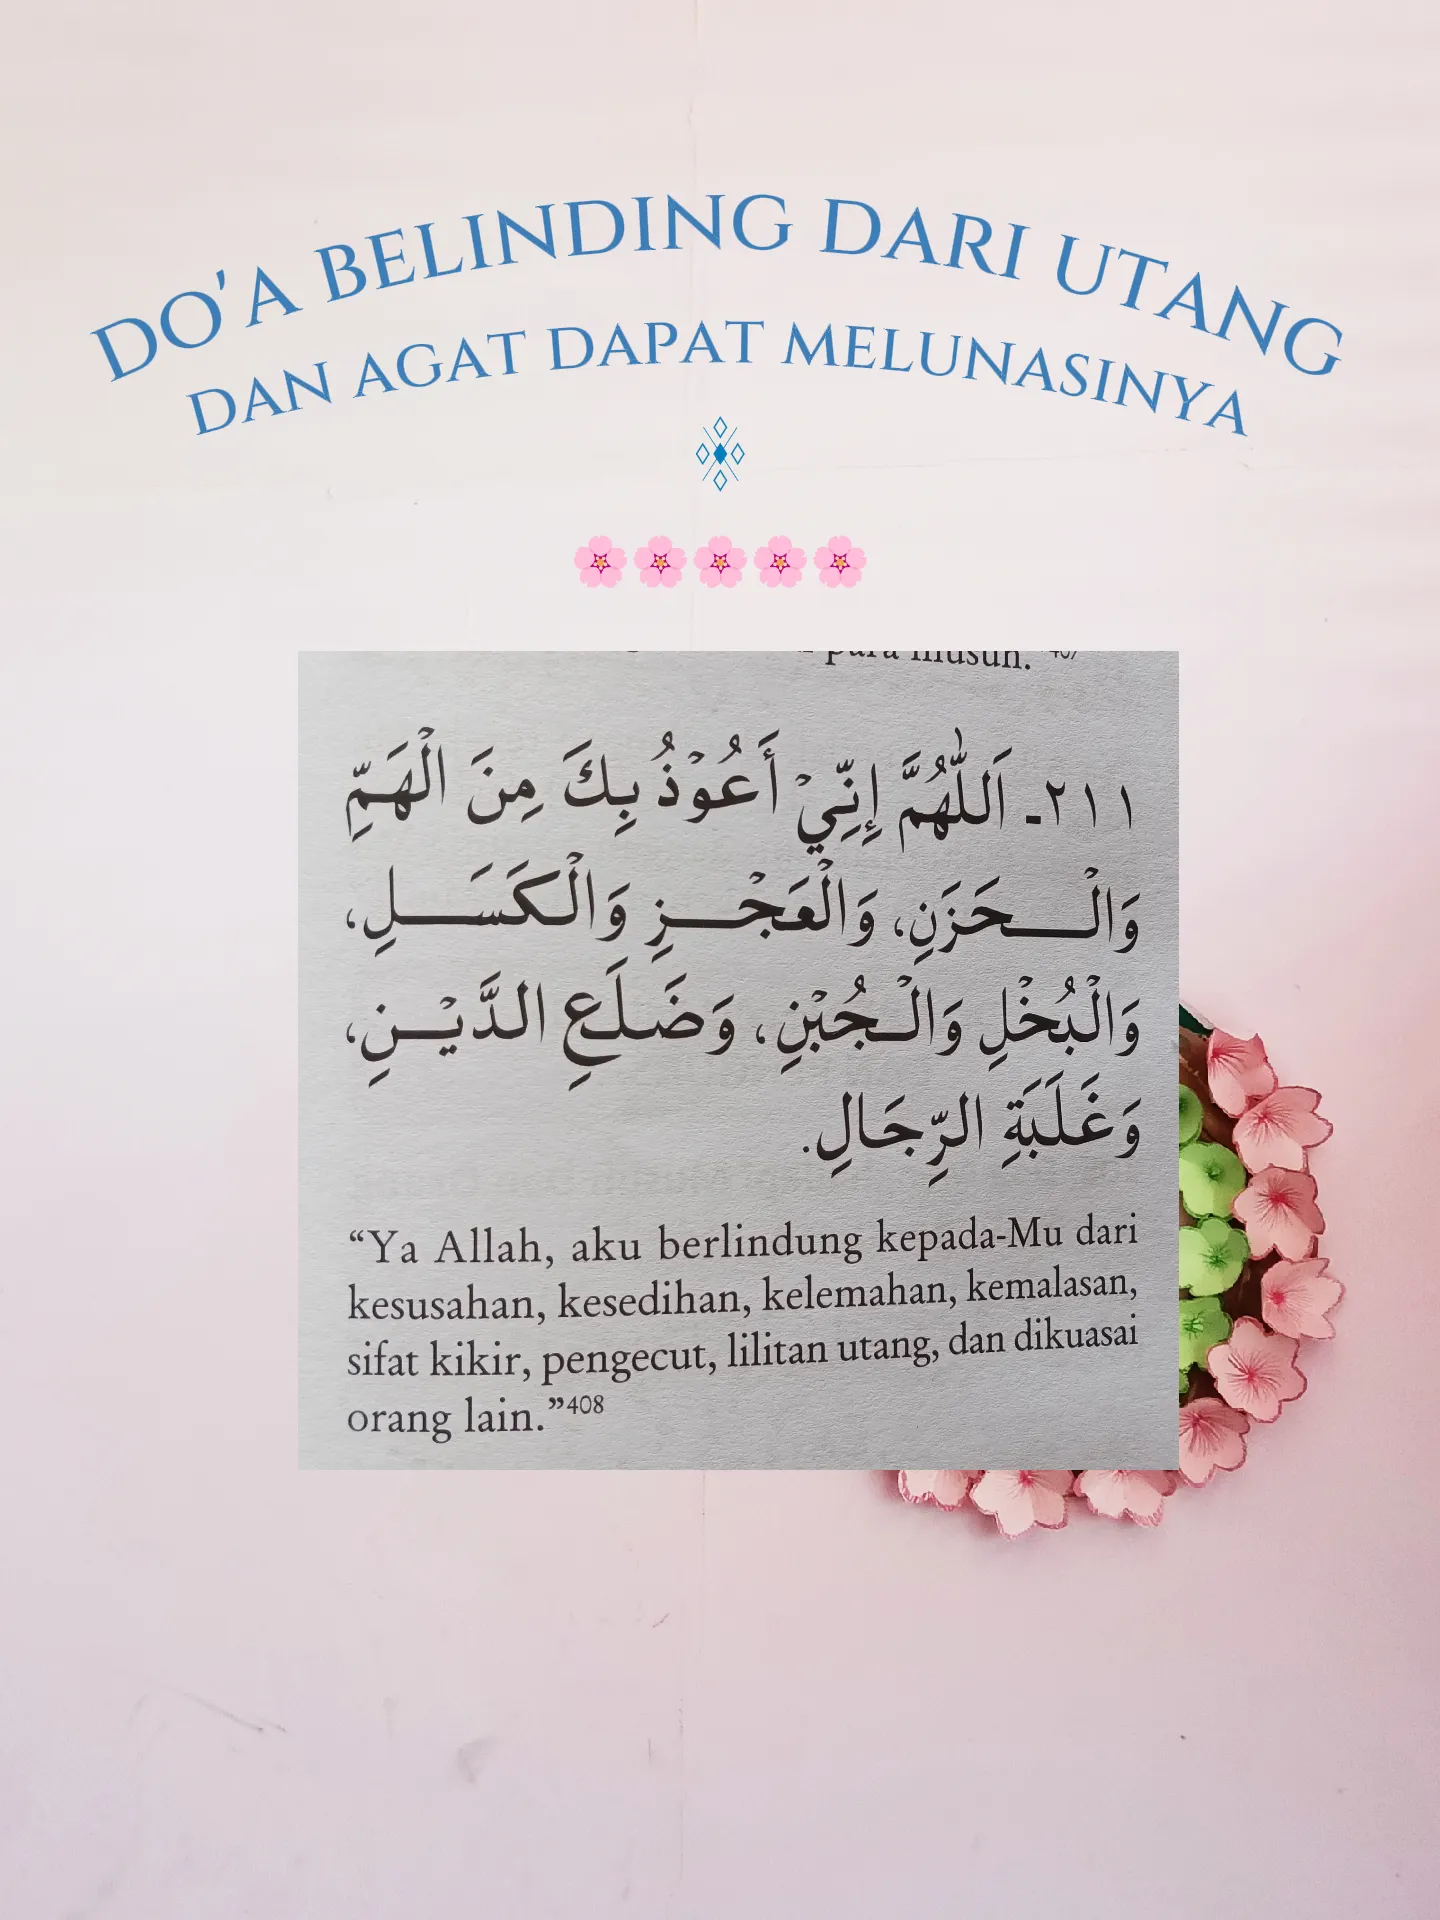 DO'A BELINDING DARI UTANG
DAN AGAT DAPAT MELUNASINYA
para musuh." 407
٢١١ـ اَللّٰهُمَّ إِنِّيْ أَعُوْذُ بِكَ مِنَ الْهَمِّ
وَالْـــحَزَنِ، وَالْعَجْـــزِ وَالْكَسَـــلِ،
وَالْبُخْلِ وَالْـجُبْنِ، وَضَلَعِ الدَّيْـنِ،
وَغَلَبَةِ الرِّجَالِ.
“Ya Allah, aku berlindung kepada-Mu dari
kesusahan, kesedihan, kelemahan, kemalasan,
sifat kikir, pengecut, lilitan utang, dan dikuasai
orang lain.”408